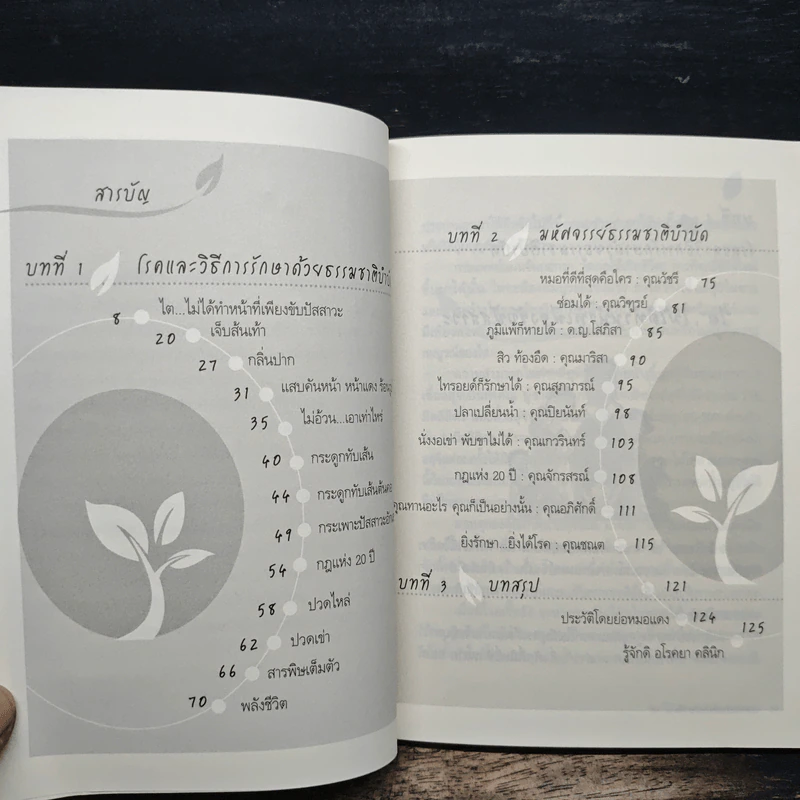 สารบัญ
บทที่ 1 โรคและวิธีการรักษาด้วยธรรมชาติบำบั
8 ไต...ไม่ได้ทำหน้าที่เพียงขับปัสสาวะ
20 เจ็บส้นเท้า
27 กลิ่นปาก
31 แสบคันหน้า หน้าแดง
35 ไม่อ้วน...เอาเท่าไหร่
40 กระดูกทับเส้น
44 กระดูกทับเส้นต้นคอ
49 กระเพาะปัสสาวะอักเ
54 กฎแห่ง 20 ปี
58 ปวดไหล่
62 ปวดเข่า
66 สารพิษเต็มตัว
70 พลังชีวิต
บทที่ 2 มหัศจรรย์ธรรมชาติบำบัด
หมอที่ดีที่สุดคือใคร : คุณวัชรี 75
ซ่อมได้ : คุณวิฑูรย์ 81
ภูมิแพ้ก็หายได้ : ด.ญ.โสภิสา 85
สิว ท้องอืด : คุณมาริสา 90
ไทรอยด์ก็รักษาได้ : คุณสุภาภรณ์ 95
ปลาเปลี่ยนน้ำ : คุณปิยนันท์ 98
นั่งงอเข่า พับขาไม่ได้ : คุณเกวรินทร์ 103
กฎแห่ง 20 ปี : คุณจักรสรณ์ 108
คุณทานอะไร คุณก็เป็นอย่างนั้น : คุณอภิศักดิ์ 111
ยิ่งรักษา...ยิ่งได้โรค : คุณชณต 115
บทที่ 3 บทสรุป 121
ประวัติโดยย่อหมอแดง 124
125
รู้จักดิ อโรคยา คลินิก